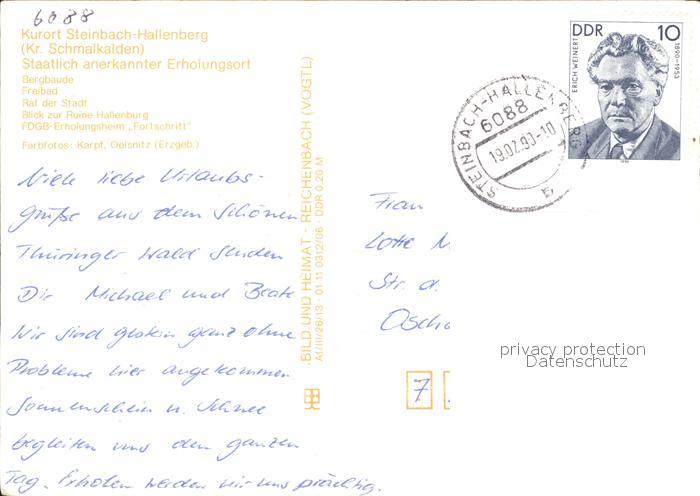 6088
Kurort Steinbach-Hallenberg
(Kr. Schmalkalden)
Staatlich anerkannter Erholungsort
Bergbaude
Freibad
Rat der Stadt
Blick zur Ruine Hallenburg
FDGB-Erholungsheim „Fortschritt"
Farbfotos: Karpf, Oelsnitz (Erzgeb.)
Viele liebe Urlaubs-
grüße aus dem schönen
Thüringer Wald senden
Dir Michael und Beate
Wir sind gestern ganz ohne
Probleme hier angekommen
Sonnenschein u. Schnee
begleiten uns den ganzen
Tag. Erholen werden wir uns prächtig.
BILD UND HEIMAT · REICHENBACH (VOGTL)
A1/III/26/13 · 01 11 0312/06 · DDR 0,20 M
DDR 10
ERICH WEINERT
1890-1953
1990
STEINBACH-HALLENBERG
6088
19.02.90-10
b
Frau
Lotte M
Str. d.
Oscha
7
privacy protection
Datenschutz